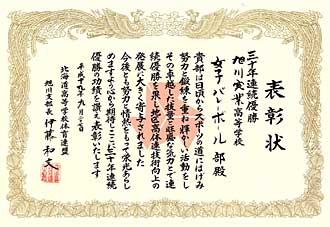 表彰状
三十年連続優勝
旭川実業高等学校
女子バレーボール部殿
貴部は日頃からスポーツの道にはげみ
努力と鍛練を重ね輝かしい活動をし
その卓越した技量と旺盛な気力とで連
続優勝を果し地区高体連技術向上の
発展に大きく寄与されました
今後とも努力と情熱をもって栄光あらし
めますよう心から期待しここに三十年連続
優勝の功績を讃え表彰いたします
平成十九年九月二十日
北海道高等学校体育連盟
旭川支部長 伊藤和文